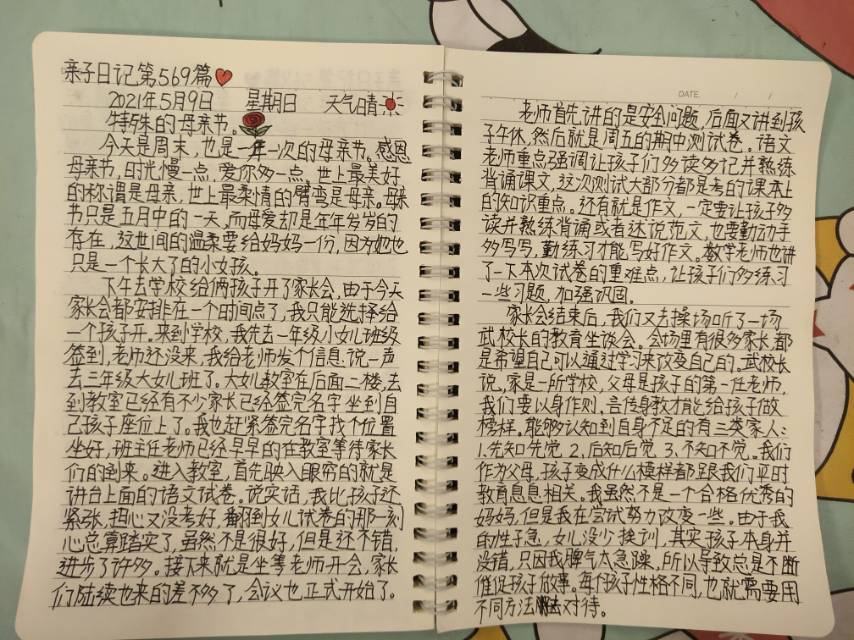 亲子日记第569篇
2021年5月9日 星期日 天气晴
特殊的母亲节。
今天是周末，也是一年一次的母亲节。感恩
母亲节，时光慢一点，爱你多一点。世上最美好
的称谓是母亲，世上最柔情的臂弯是母亲。母亲
节只是五月中的一天，而母爱却是年年岁岁的
存在，这世间的温柔要给妈妈一份，因为她也
只是一个长大了的小女孩。
下午去学校给俩孩子开了家长会，由于今天
家长会都安排在一个时间点了，我只能选择给
一个孩子开。来到学校，我先去一年级小女儿班级
签到，老师还没来，我给老师发个信息，说一声
去三年级大女儿班了。大女儿教室在后面二楼，去
到教室已经有不少家长已经签完名字坐到自
己孩子座位上了。我也赶紧签完名字找个位置
坐好，班主任老师已经早早的在教室等待家长
们的到来。进入教室，首先映入眼帘的就是
讲台上面的语文试卷。说实话，我比孩子还
紧张，担心又没考好，翻到女儿试卷的那一刻
心总算踏实了，虽然不是很好，但是还不错，
进步了许多。接下来就是坐等老师开会，家长
们陆续也来的差不多了，会议也正式开始了。
DATE / /
老师首先讲的是安全问题，后面又讲到孩
子午休，然后就是周五的期中测试卷。语文
老师重点强调让孩子们多读多记并熟练
背诵课文，这次测试大部分都是考的课本上
的知识重点。还有就是作文，一定要让孩子多
读并熟练背诵或者述说范文，也要勤动手
多写写，勤练习才能写好作文。数学老师也讲
了一下本次试卷的重难点，让孩子们多练习
一些习题，加强巩固。
家长会结束后，我们又去操场听了一场
武校长的教育坐谈会。会场里有很多家长，都
是希望自己可以通过学习来改变自己的。武校长
说，家是一所学校，父母是孩子的第一任老师，
我们要以身作则，言传身教才能给孩子做
榜样。能够认知到自身不足的有三类家人：
1.先知先觉 2.后知后觉 3.不知不觉。我们
作为父母，孩子变成什么模样都跟我们平时
教育息息相关。我虽然不是一个合格优秀的
妈妈，但是我在尝试努力改变一些。由于我
的性子急，女儿没少挨训，其实孩子本身并
没错，只因我脾气太急躁，所以导致总是不断
催促孩子做事。每个孩子性格不同，也就需要用
不同方法去对待。